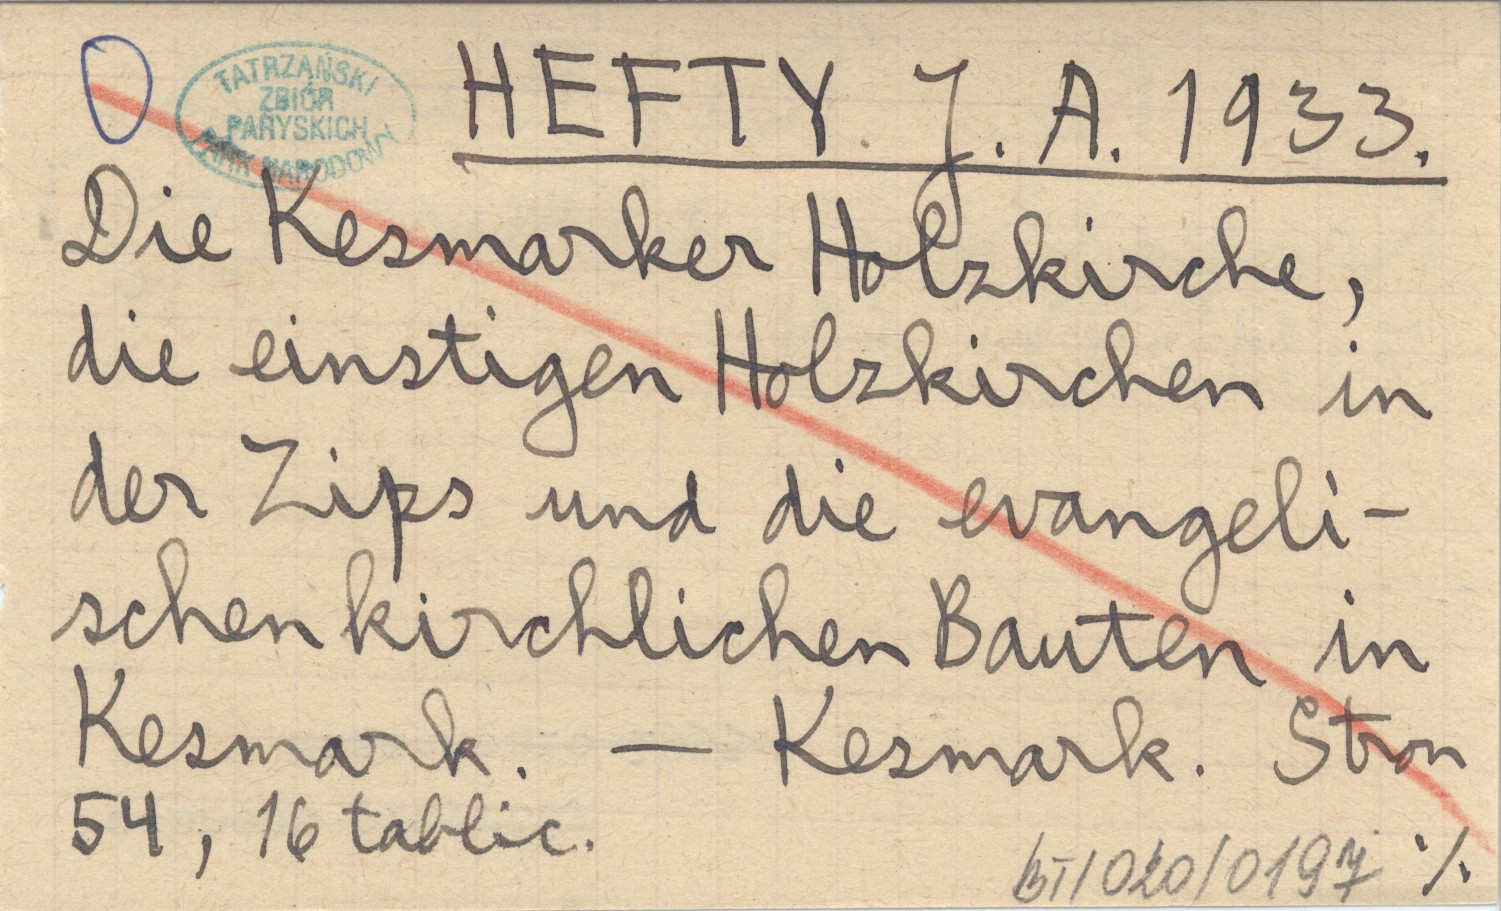 TATRZAŃSKI
ZBIÓR
PARYSKICH
PARK NARODOWY
HEFTY J. A. 1933.
Die Kesmarker Holzkirche,
die einstigen Holzkirchen in
der Zips und die evangeli-
schen kirchlichen Bauten in
Kesmark. — Kesmark. Stron
54, 16 tablic.
BT/020/0197 ·/.